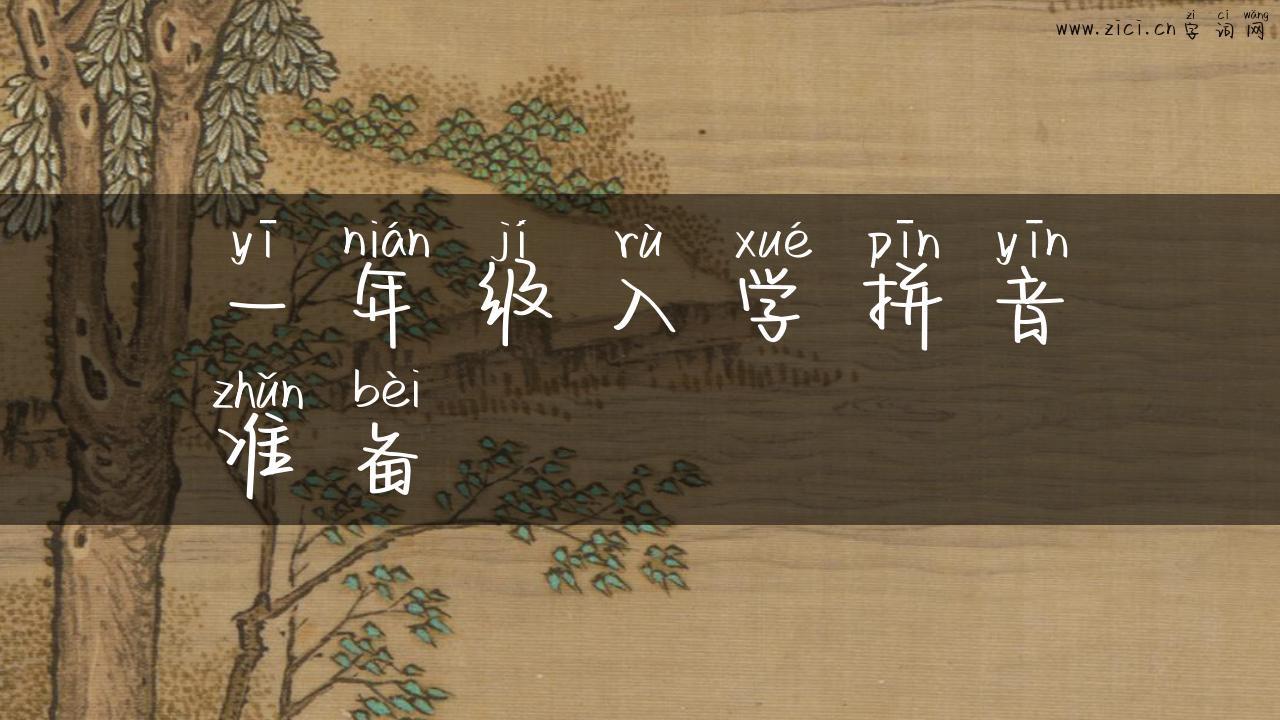 zì cí wǎng
www.zici.cn 字词网
yī nián jí rù xué pīn yīn
一年级入学拼音
zhǔn bèi
准备